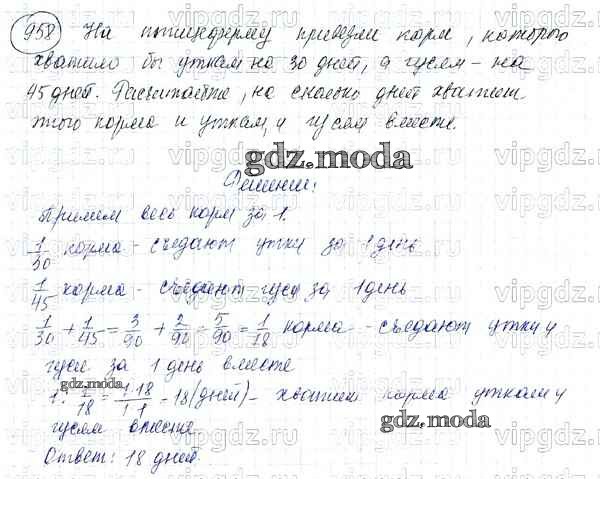 958 На птицеферму привезли корм, которого
хватило бы уткам на 30 дней, а гусям - на
45 дней. Рассчитайте, на сколько дней хватит
этого корма и уткам, и гусям вместе.
gdz.moda
Решение:
Примем весь корм за 1.
1/30 корма - съедают утки за 1 день
1/45 корма - съедают гуси за 1 день
1/30 + 1/45 = 3/90 + 2/90 = 5/90 = 1/18 корма - съедают утки и
гуси за 1 день вместе
gdz.moda
1 : 1/18 = 1·18/1·1 = 18 (дней) - хватит корма уткам и
gdz.moda
гусям вместе
Ответ: 18 дней.
vipgdz.ru